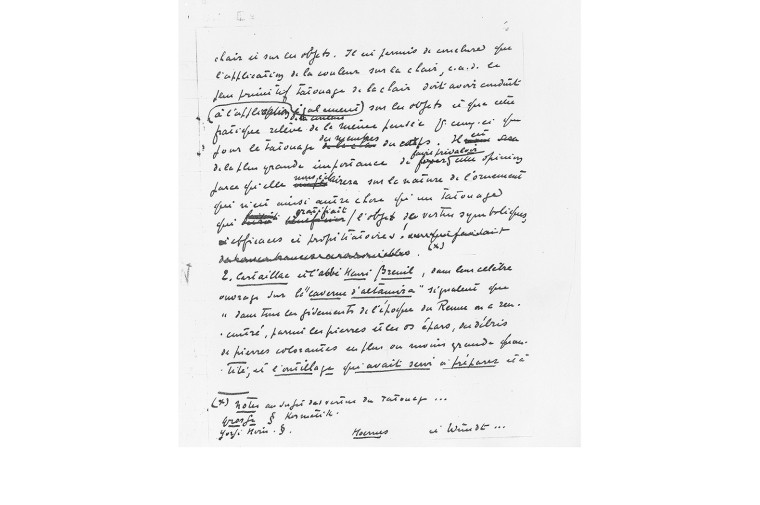 chair et sur les objets. Il est permis de conclure que
l'application de la couleur sur la chair, c.a.d. le
primitif tatouage de la chair doit avoir conduit
à l'application également sur les objets et que cette
de la couleur
pratique relève de la même pensée § ceux-ci que
pour le tatouage des membres du corps. Il sera
de la plus grande importance de faire prévaloir cette opinion
parce qu'elle nous éclairera sur la nature de l'ornement
qui n'est ainsi autre chose qu'un tatouage
qui gratifiait l'objet de vertus symboliques
efficaces et propitiatoires
(*)
E. Cartailhac et l'abbé Henri Breuil, dans leur célèbre
ouvrage sur la "caverne d'altamira" signalent que
"dans tous les gisements de l'époque du Renne on a ren-
contré, parmi les pierres et les os épars, des débris
de pierres colorantes en plus ou moins grande quan-
tité, et l'outillage qui avait servi à préparer et à
(*) notes au sujet des vertus du tatouage ...
grosse § Kosmetik.
Yrjö Hirn. §. Hoernes et Wundt ...